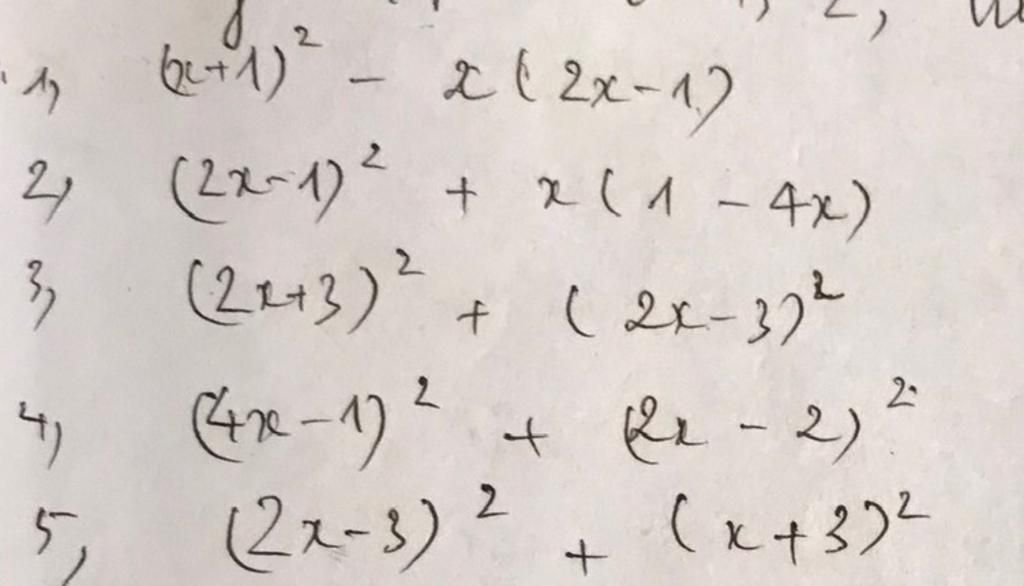 1, (x+1)² - x(2x-1)
2, (2x-1)² + x(1-4x)
3, (2x+3)² + (2x-3)²
4, (4x-1)² + (2x-2)²
5, (2x-3)² + (x+3)²